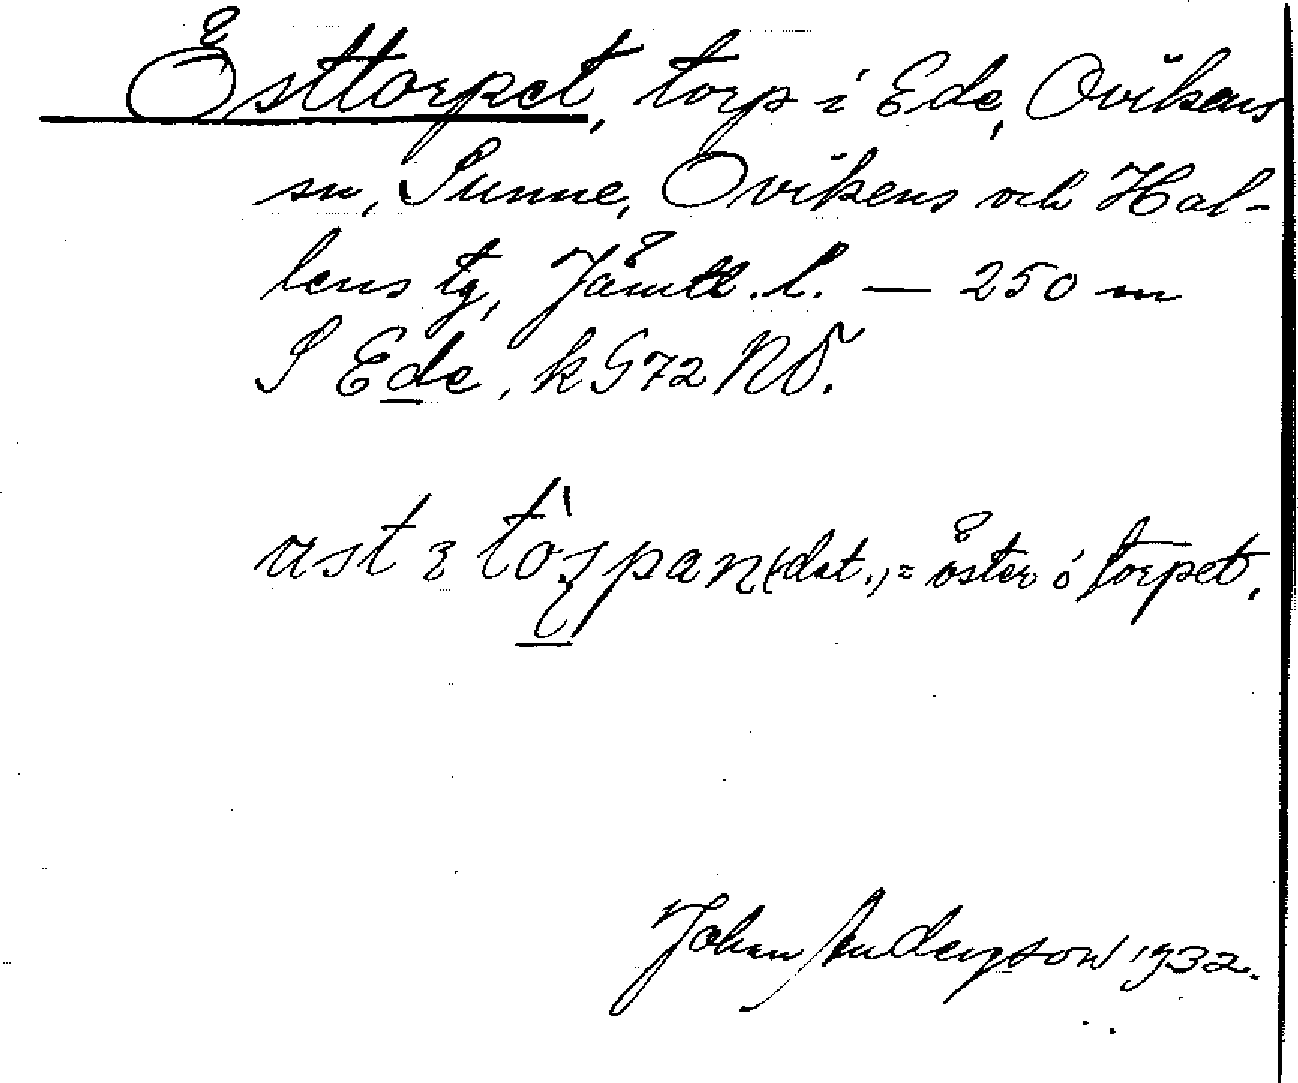 Östtorpet, torp i Ede, Ovikens
sn, Sunne, Ovikens och Hal-
lens tg, Jämtl. l. — 250 m
S Ede, k G72 NÖ.
öster i torpet.
Johan Anderson 1932.